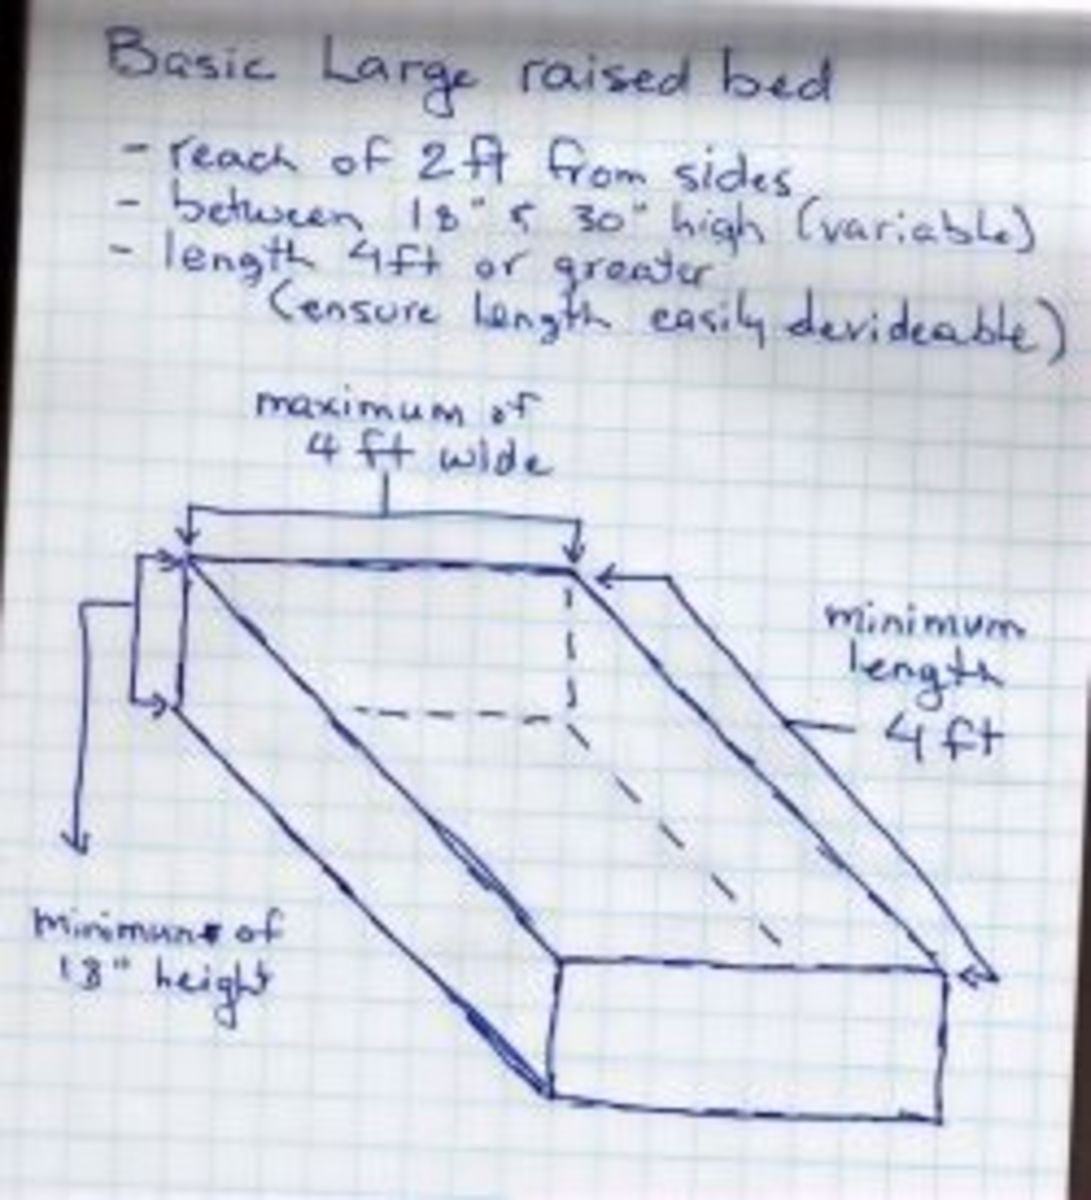 Basic Large raised bed
- reach of 2ft from sides
- between 18" & 30" high (variable)
- length 4ft or greater
(ensure length easily devideable)
maximum of
4 ft wide
minimum
length
4 ft
minimum of
18" height